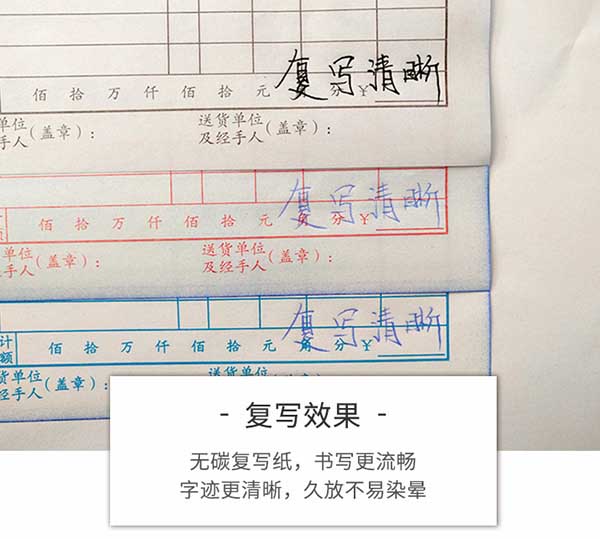 复写清晰
佰 拾 万 仟 佰 拾 元 分 ¥
单位
手人 (盖章)：
送货单位
及经手人
复写清晰
佰 拾 万 仟 佰 拾 元 角 分 ¥
单位
手人 (盖章)：
送货单位
及经手人
复写清晰
计
额
佰 拾 万 仟 佰 拾 元 角 分 ¥
货单位
经手人 (盖章)：
送货单位
- 复写效果 -
无碳复写纸，书写更流畅
字迹更清晰，久放不易染晕